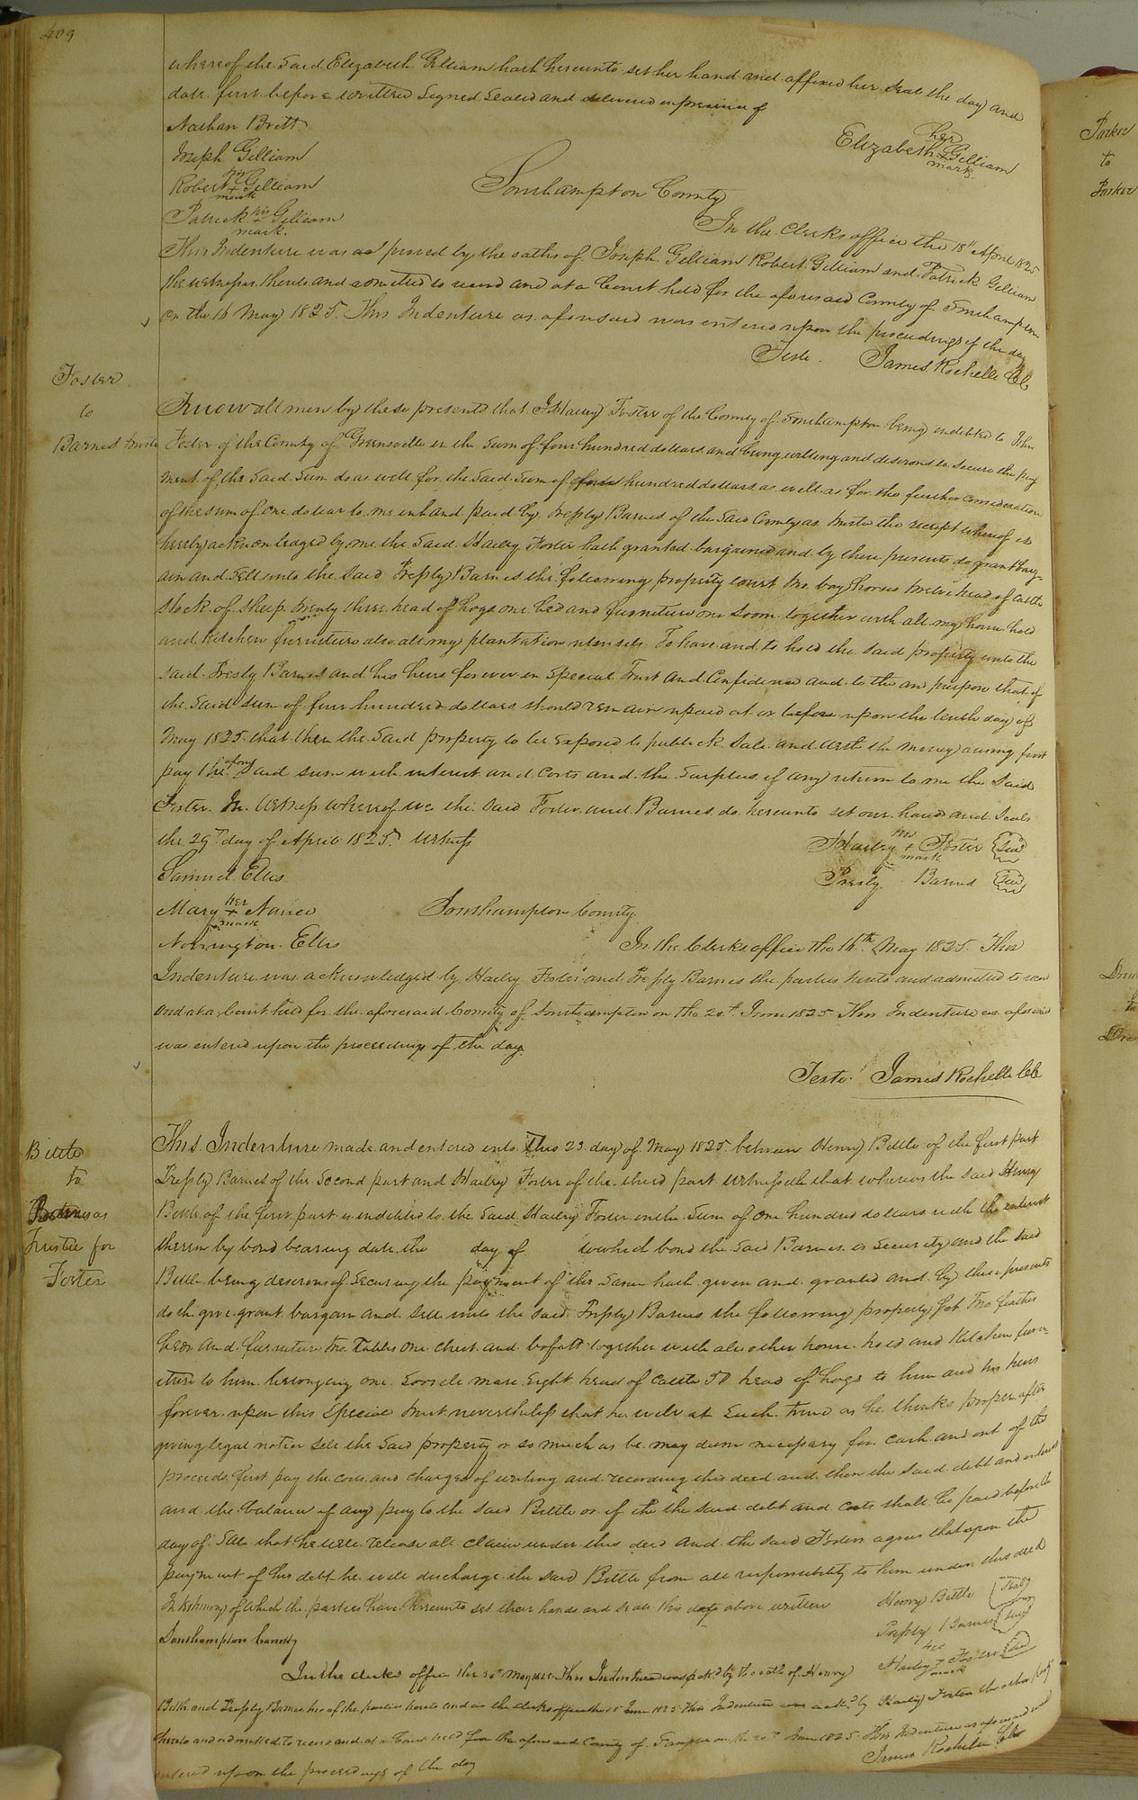 409
whereof the Said Elizabeth Gilliam hath hereunto set her hand and affixed her seal the day and
date first before written Signed Sealed and delivered in presence of
Nathan Britt
Joseph Gilliam
Robert his + mark Gilliam
Patrick his + mark Gilliam
Elizabeth her + mark Gilliam
Southampton County
In the Clerks office the 18th April 1825
This Indenture was proved by the oaths of Joseph Gilliam Robert Gilliam and Patrick Gilliam
the witnesses thereto and admitted to record and at a Court held for the aforesaid County of Southampton
on the 16 May 1825. This Indenture as aforesaid was entered upon the proceedings of the day
Teste. James Rochelle Clk
Foster
to
Barnes trustee
Know all men by these presents that I Hailey Foster of the County of Southampton being indebted to John
Foster of the County of Greensville in the Sum of four hundred dollars and being willing and desirous to secure the pay
ment of the Said Sum do as well for the Said Sum of four hundred dollars as well as for the further consideration
of the sum of one dollar to me in hand paid by Presly Barnes of the Said County as trustee the receipt whereof is
hereby acknowledged by me the Said Hailey Foster hath granted bargained and by these presents do grant Barg-
ain and Sell unto the Said Presly Barnes the following property towit two bay horses twelve head of cattle
Stock of Sheep twenty three head of hogs one bed and furniture one Loom together with all my house hold
and kitchen furniture also all my plantation utensils. To have and to hold the Said property unto the
Said Presly Barnes and his heirs forever in Special Trust and Confidence and to the end purpose that if
the Said Sum of four hundred dollars should remain unpaid at or before upon the tenth day of
May 1825 that then the Said property to be Exposed to publick Sale and with the money arising first
pay the Said sum with interest and costs and the Surplus if any return to me the Said
Foster. In Witness whereof we the Said Foster and Barnes do hereunto set our hands and Seals
the 29th day of April 1825. Witness
Hailey his + mark Foster Seal
Samuel Ellis
Presly Barnes Seal
Mary her + mark Nance
Southampton County
Norrington Ellis
In the Clerks office the 16th May 1825. This
Indenture was acknowledged by Hailey Foster and Presly Barnes the parties hereto and admitted to record
and at a Court held for the aforesaid County of Southampton on the 20th June 1825 This Indenture as aforesaid
was entered upon the proceedings of the day
Teste. James Rochelle Clk
Bittle
to
Barnes as
Trustee for
Foster
This Indenture made and entered into This 23 day of May 1825 between Henry Bittle of the first part
Presly Barnes of the Second part and Hailey Foster of the third part witnesseth that whereas the Said Henry
Bittle of the first part is indebted to the Said Hailey Foster in the Sum of One hundred dollars with the interest
therein by bond bearing date the day of which bond the Said Barnes is Security and the Said
Bittle being desirous of Securing the payment of the Same hath given and granted and by these presents
doth give grant bargain and Sell unto the Said Presly Barnes the following property Viz Two feather
beds and furniture two Tables One chest and bofatt together with all other house hold and kitchen furn
iture to him belonging one Sorrele mare Eight head of Cattle 20 head of hogs to him and his heirs
forever upon this Special trust nevertheless that he will at Such time as he thinks proper after
giving legal notice Sell the Said property or so much as he may deem necessary for cash and out of the
proceeds first pay the costs and charges of writing and recording this deed and then the Said debt and interest
and the balance if any pay to the Said Bittle or if the the Said debt and costs shall be paid before the
day of Sale that he will release all claim under this deed and the Said Foster agrees that upon the
payment of his debt he will discharge the Said Bittle from all responsibility to him under this deed
In testimony of which the parties have hereunto set their hands and seals this day above written
Henry Bittle Seal
Presly Barnes Seal
Hailey his + mark Foster Seal
Southampton County
In the clerks office the 30th May 1825 This Indenture was ackd by the oath of Henry
Bittle and Presly Barnes two of the parties hereto and in the clerks office the 15 June 1825 This Indenture was ackd by Hailey Foster the other party
thereto and admitted to record and at a Court held for the aforesaid County of Sampton on the 20th June 1825 This Indenture as aforesaid was
entered upon the proceedings of the day
James Rochelle Clk
Parker
to
Parker